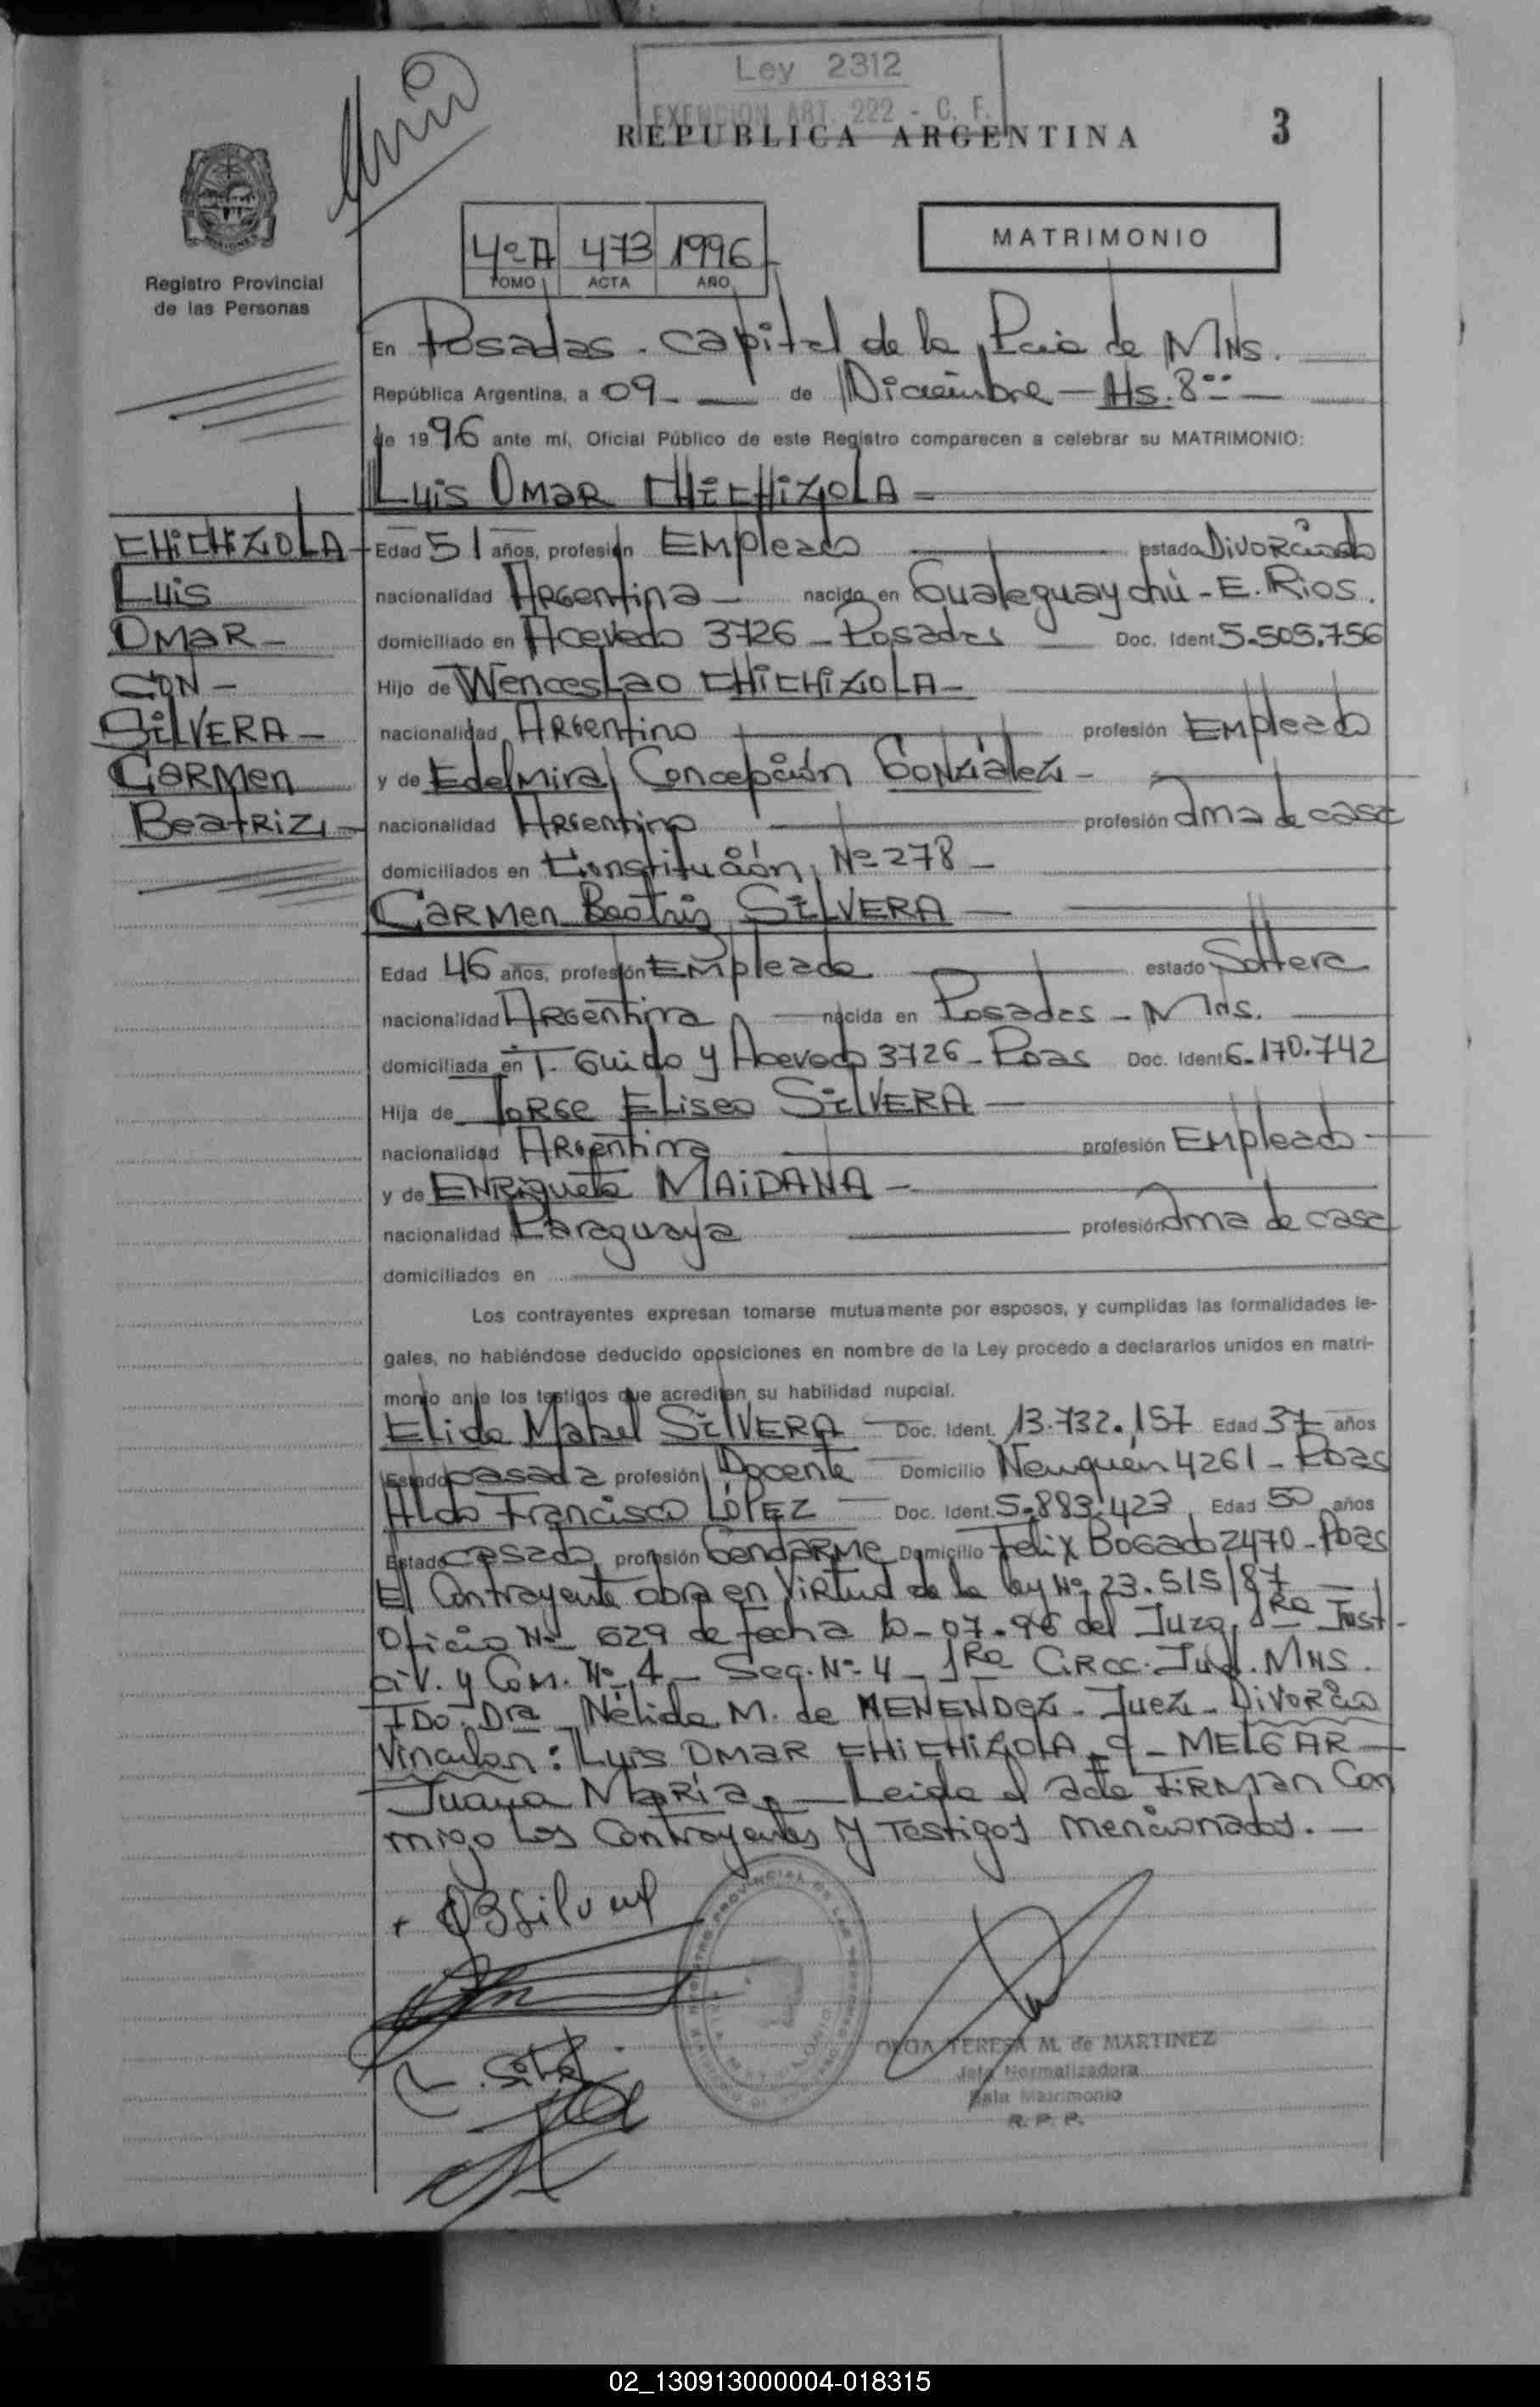 Ley 2312
EXENCION ART. 222 - C. F.
REPUBLICA ARGENTINA
3
Registro Provincial
de las Personas
4º A 473 1996
TOMO ACTA AÑO
MATRIMONIO
En Posadas - Capital de la Pcia de Mns.
República Argentina, a 09 - de Diciembre - Hs. 8 -
de 1996 ante mí, Oficial Público de este Registro comparecen a celebrar su MATRIMONIO:
Luis Omar CHICHIZOLA -
CHICHIZOLA
Luis
Omar -
CON -
SILVERA -
Carmen
Beatriz -
Edad 51 años, profesión Empleado estado Divorciado
nacionalidad Argentina - nacido en Gualeguaychú - E. Rios.
domiciliado en Acevedo 3726 - Posadas Doc. Ident. 5.505.756
Hijo de Wenceslao CHICHIZOLA -
nacionalidad Argentino profesión Empleado
y de Edelmira Concepción González -
nacionalidad Argentina profesión Ama de casa
domiciliados en Constitución Nº 278 -
Carmen Beatriz SILVERA -
Edad 46 años, profesión Empleada estado Soltera
nacionalidad Argentina nacida en Posadas - Mns.
domiciliada en T. Guido y Acevedo 3726 - Pdas Doc. Ident. 6.170.742
Hija de Jorge Eliseo SILVERA -
nacionalidad Argentina profesión Empleado -
y de Enriqueta MAIDANA -
nacionalidad Paraguaya profesión Ama de casa
domiciliados en
Los contrayentes expresan tomarse mutuamente por esposos, y cumplidas las formalidades le-
gales, no habiéndose deducido oposiciones en nombre de la Ley procedo a declararlos unidos en matri-
monio ante los testigos que acrediten su habilidad nupcial.
Elida Mabel SILVERA - Doc. Ident. 13.732.157 Edad 37 años
Estado casada profesión Docente Domicilio Neuquén 4261 - Pdas
Aldo Francisco LÓPEZ - Doc. Ident. 5.883.423 Edad 50 años
Estado casado profesión Gendarme Domicilio Felix Bogado 2470 - Pdas
El Contrayente obra en Virtud de la ley Nº 23.515/87 -
Oficio Nº 629 de fecha 10-07-96 del Juzg. 1ra Inst -
civ. y Com. Nº 4 - Sec. Nº 4 - 1ra Circ. Jud. Mns.
FDO. Dra Nélida M. de MENENDEZ - Juez - Divorcio
Vincular: Luis Omar CHICHIZOLA - c - MELGAR -
Juana María - Leida el acta firman Con
migo los Contrayentes y Testigos mencionados. -
OLGA TERESA M. de MARTINEZ
Jefa Normalizadora
Sala Matrimonio
R. P. P.
02_130913000004-018315